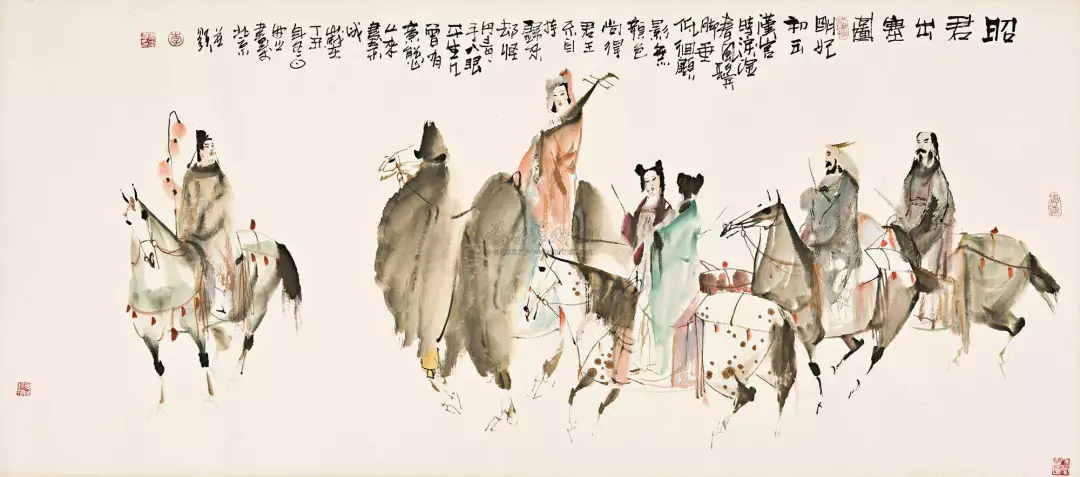 昭君出塞圖
明妃
初出
漢宮
時淚濕
春風鬢
脚垂
低徊顧
影無
顏色
尚得
君王
不自
持
歸來
却怪
丹青
手入眼
平生幾
曾有
意態
由來
畫不
成
丁丑
北京
並
題